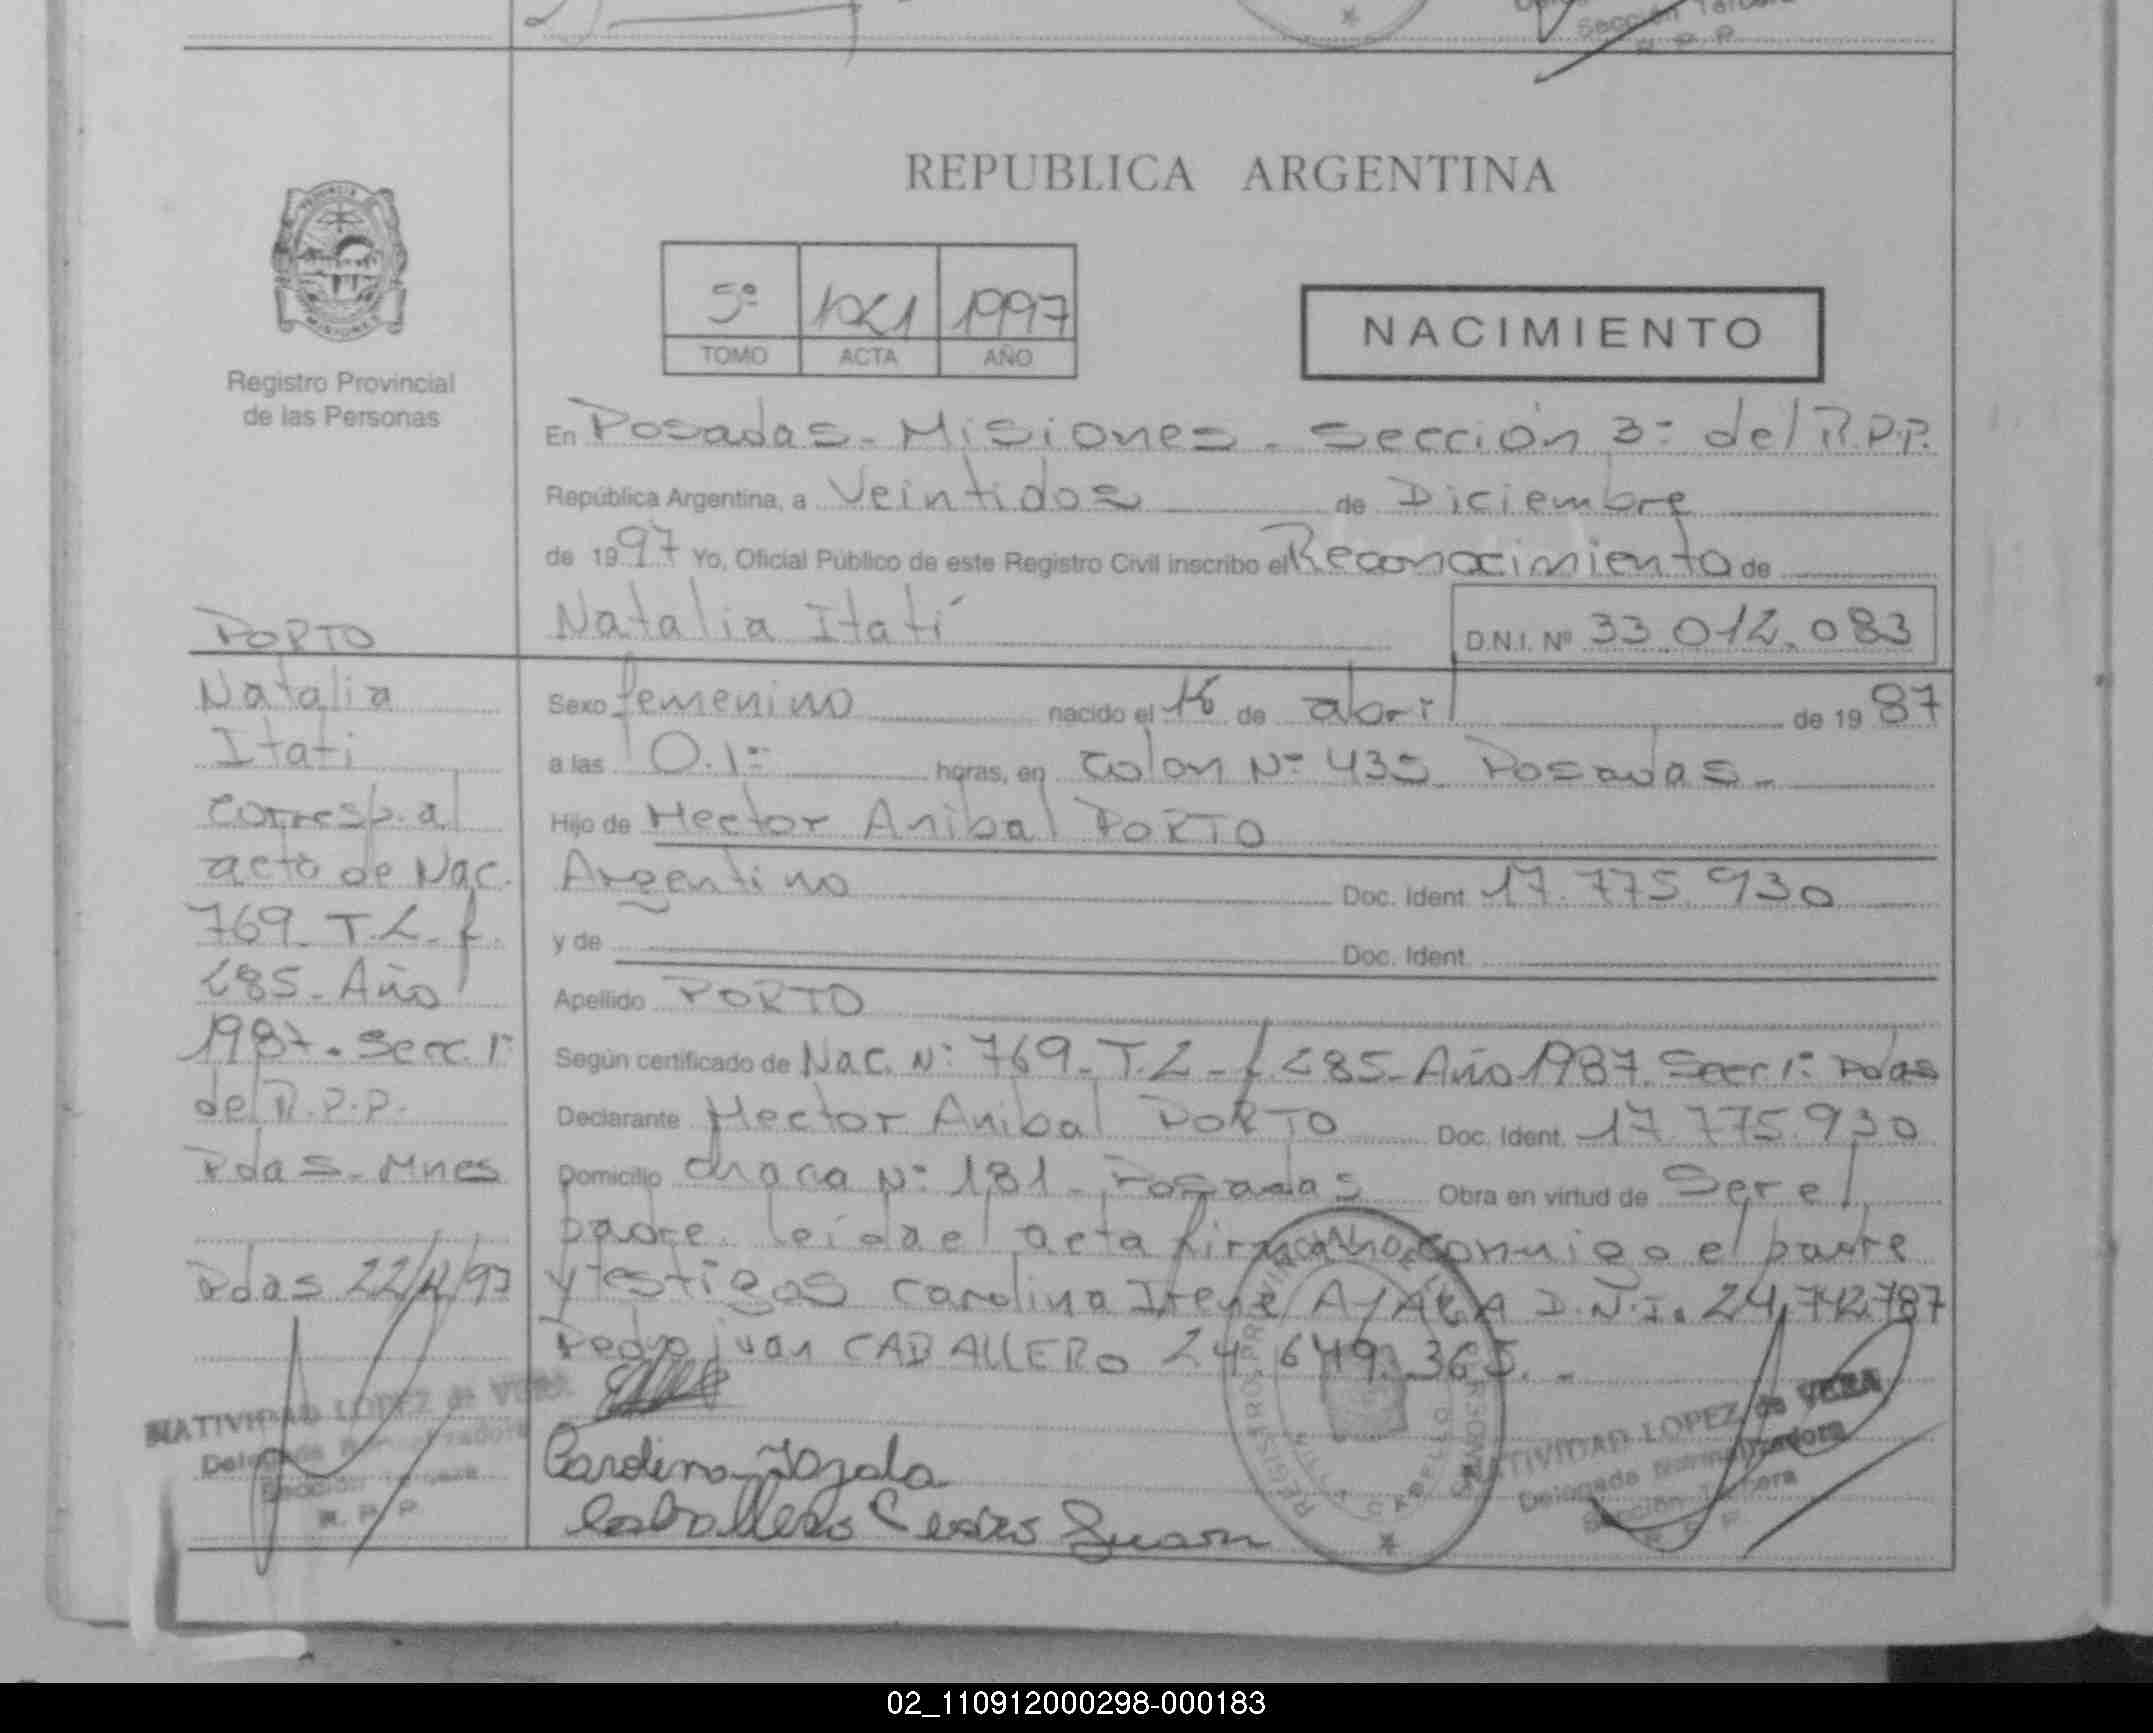 Sección Tercera
R. P. P.
REPUBLICA ARGENTINA
5º 1021 1997
TOMO ACTA AÑO
NACIMIENTO
Registro Provincial
de las Personas
En Posadas - Misiones - Sección 3º del R.P.P.
República Argentina, a Veintidos de Diciembre
de 1997 Yo, Oficial Público de este Registro Civil inscribo el Reconocimiento de
Natalia Itatí D.N.I. Nº 33.012.083
PORTO
Natalia
Itati
corresp. al
acto de Nac.
769 T.2 - f.
285 - Año
1987. Secc. 1º
del R.P.P.
Pdas - Mnes
Pdas 22/12/97
NATIVIDAD LOPEZ de VERA
Delegada Normalizadora
Sección Tercera
R. P. P.
Sexo femenino nacido el 16 de abril de 1987
a las 0.1º horas, en Colon Nº 435 Posadas -
Hijo de Hector Anibal PORTO
Argentino Doc. Ident. 17.775.930
y de Doc. Ident.
Apellido PORTO
Según certificado de Nac. Nº 769 - T.2 - f. 285 - Año 1987. Secc 1º Pdas
Declarante Hector Anibal PORTO Doc. Ident. 17.775.930
Domicilio chaca Nº 181 - Posadas Obra en virtud de Ser el
padre. leida el acta firman conmigo el padre
y testigos Carolina Irene AYALA D.N.I. 24.742.787
Pedro juan CABALLERO 24.649.365. -
Carolina Ayala
Caballero Pedro Juan
NATIVIDAD LOPEZ de VERA
Delegada Normalizadora
Sección Tercera
R. P. P.
02_110912000298-000183